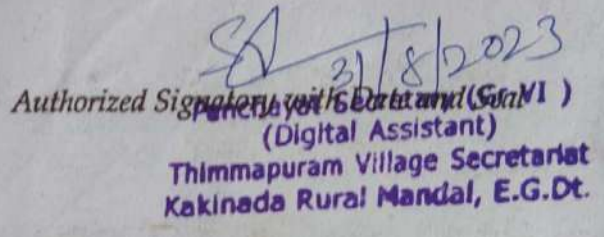 31/8/2023
Authorized Signatory with Date and Seal
Panchayat Secretary (Gr-VI )
(Digital Assistant)
Thimmapuram Village Secretariat
Kakinada Rural Mandal, E.G.Dt.